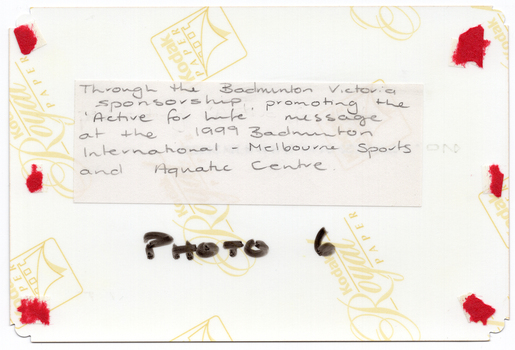 Through the Badminton Victoria
sponsorship, promoting the
'Active for Life' message
at the 1999 Badminton
International - Melbourne Sports
and Aquatic Centre.
PHOTO 6
Kodak
PAPER
Kodak
Royal
PAPER
Kodak
Royal
PAPER
Kodak